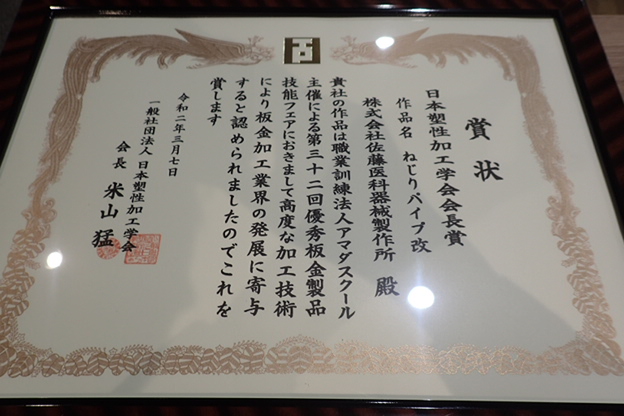 賞状
日本塑性加工学会会長賞
作品名 ねじりパイプ改
株式会社佐藤医科器械製作所 殿
貴社の作品は職業訓練法人アマダスクール
主催による第三十二回優秀板金製品
技能フェアにおきまして高度な加工技術
により板金加工業界の発展に寄与
すると認められましたのでこれを
賞します
令和二年三月七日
一般社団法人 日本塑性加工学会
会長 米山 猛